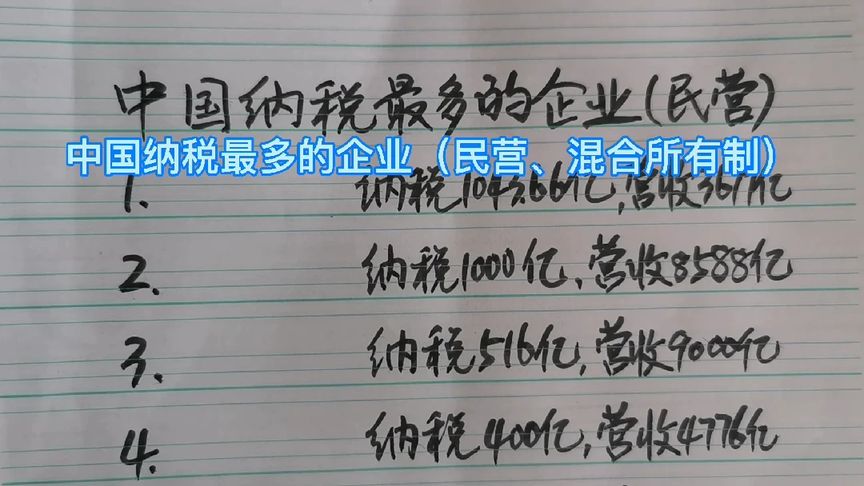 中国纳税最多的企业(民营)
中国纳税最多的企业（民营、混合所有制）
1. 纳税 亿,营收 亿
2. 纳税1000亿、营收8588亿
3. 纳税516亿,营收9000亿
4. 纳税400亿,营收4776亿